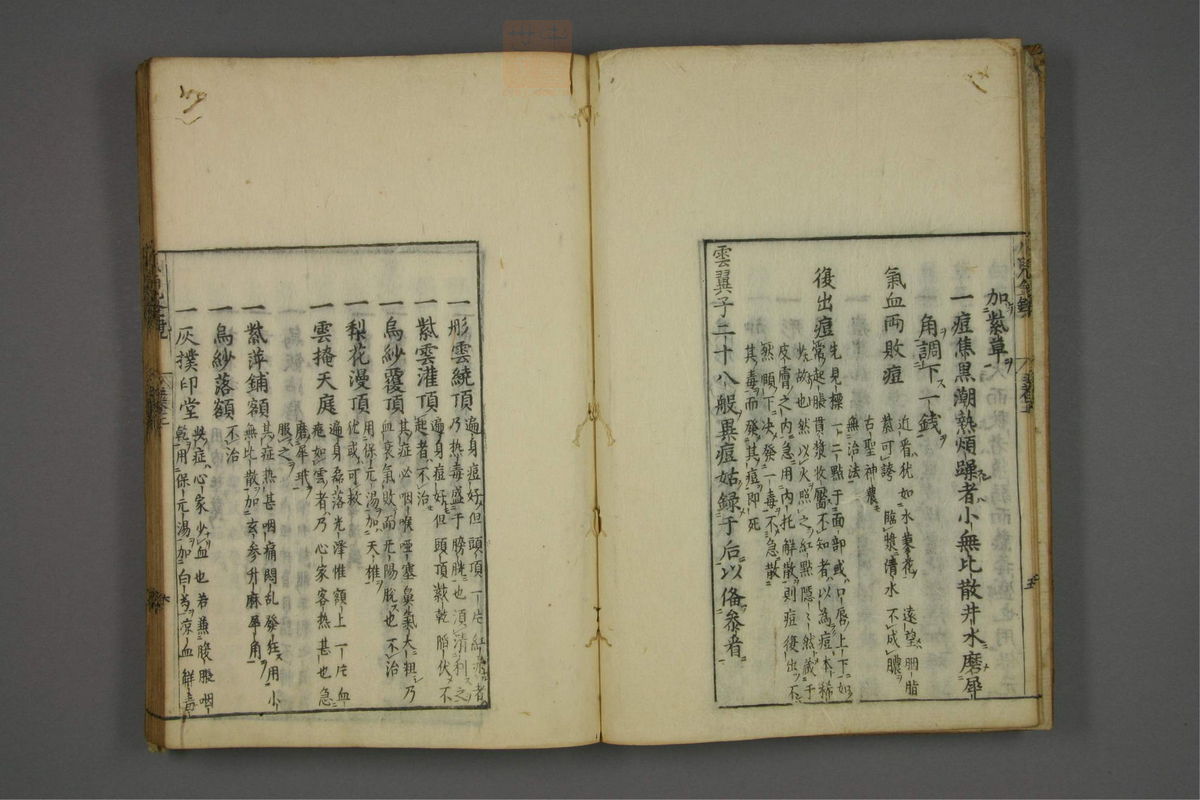 加紫草
一痘焦黒潮熱煩躁者小無比散井水磨犀
角調下一錢
氣血両敗痘
近看犹如水蓼花 遠望胭脂
甚可誇 臨漿清水不成膿
古聖神農無治法
復出痘
先見標一二點于面部或口唇上下如
常起脹貫漿收靨不知者以為痘本稀
少故也然以火照之紅點隠々然蔵于
皮膚之内急用内托解散則痘復出不
然順下决發一毒不急散
其毒而發其痘即死
雲翼子二十八般異痘姑録于后以俻參看
一彤雲繞頂
遍身痘好但頭頂一片紅痕者
乃熱毒盛于膀胱也須清利之
一紫雲灌頂
遍身痘好但頭頂数乾陥伏不
起者不治
一烏紗覆頂
其症必咽喉唖塞鼻氣大粗乃
血衰氣敗而元陽脱也不治
一梨花漫頂
用保元湯加天雄
或可救
一雲掩天庭
遍身磊落光澤惟額上一片血
疱如雲者乃心家客熱甚也急
磨犀
服之
一紫萍鋪額
其症熱甚咽痛悶乱發狂用小
無比散加玄參升麻犀角
一烏紗落額
不治
一灰撲印堂
此症心家少血也若兼腹脹咽
乾用保元湯加白芍凉血解毒